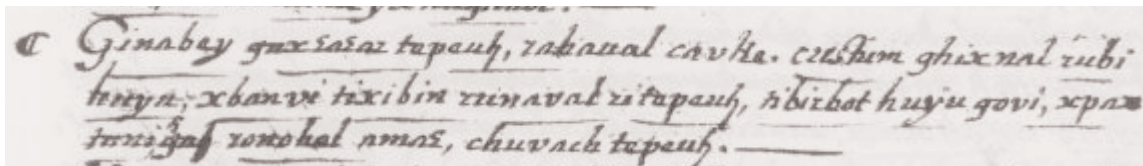 Ginabey gnxꜫaꜫar tepeuh, rahaual cauke. custum ghixnal rubi
huyu, xbanvi tixibin runaval ri tepeuh, tibirbot huyu govi, xpax
ronohel amaꜫ, chuvach tepeuh.